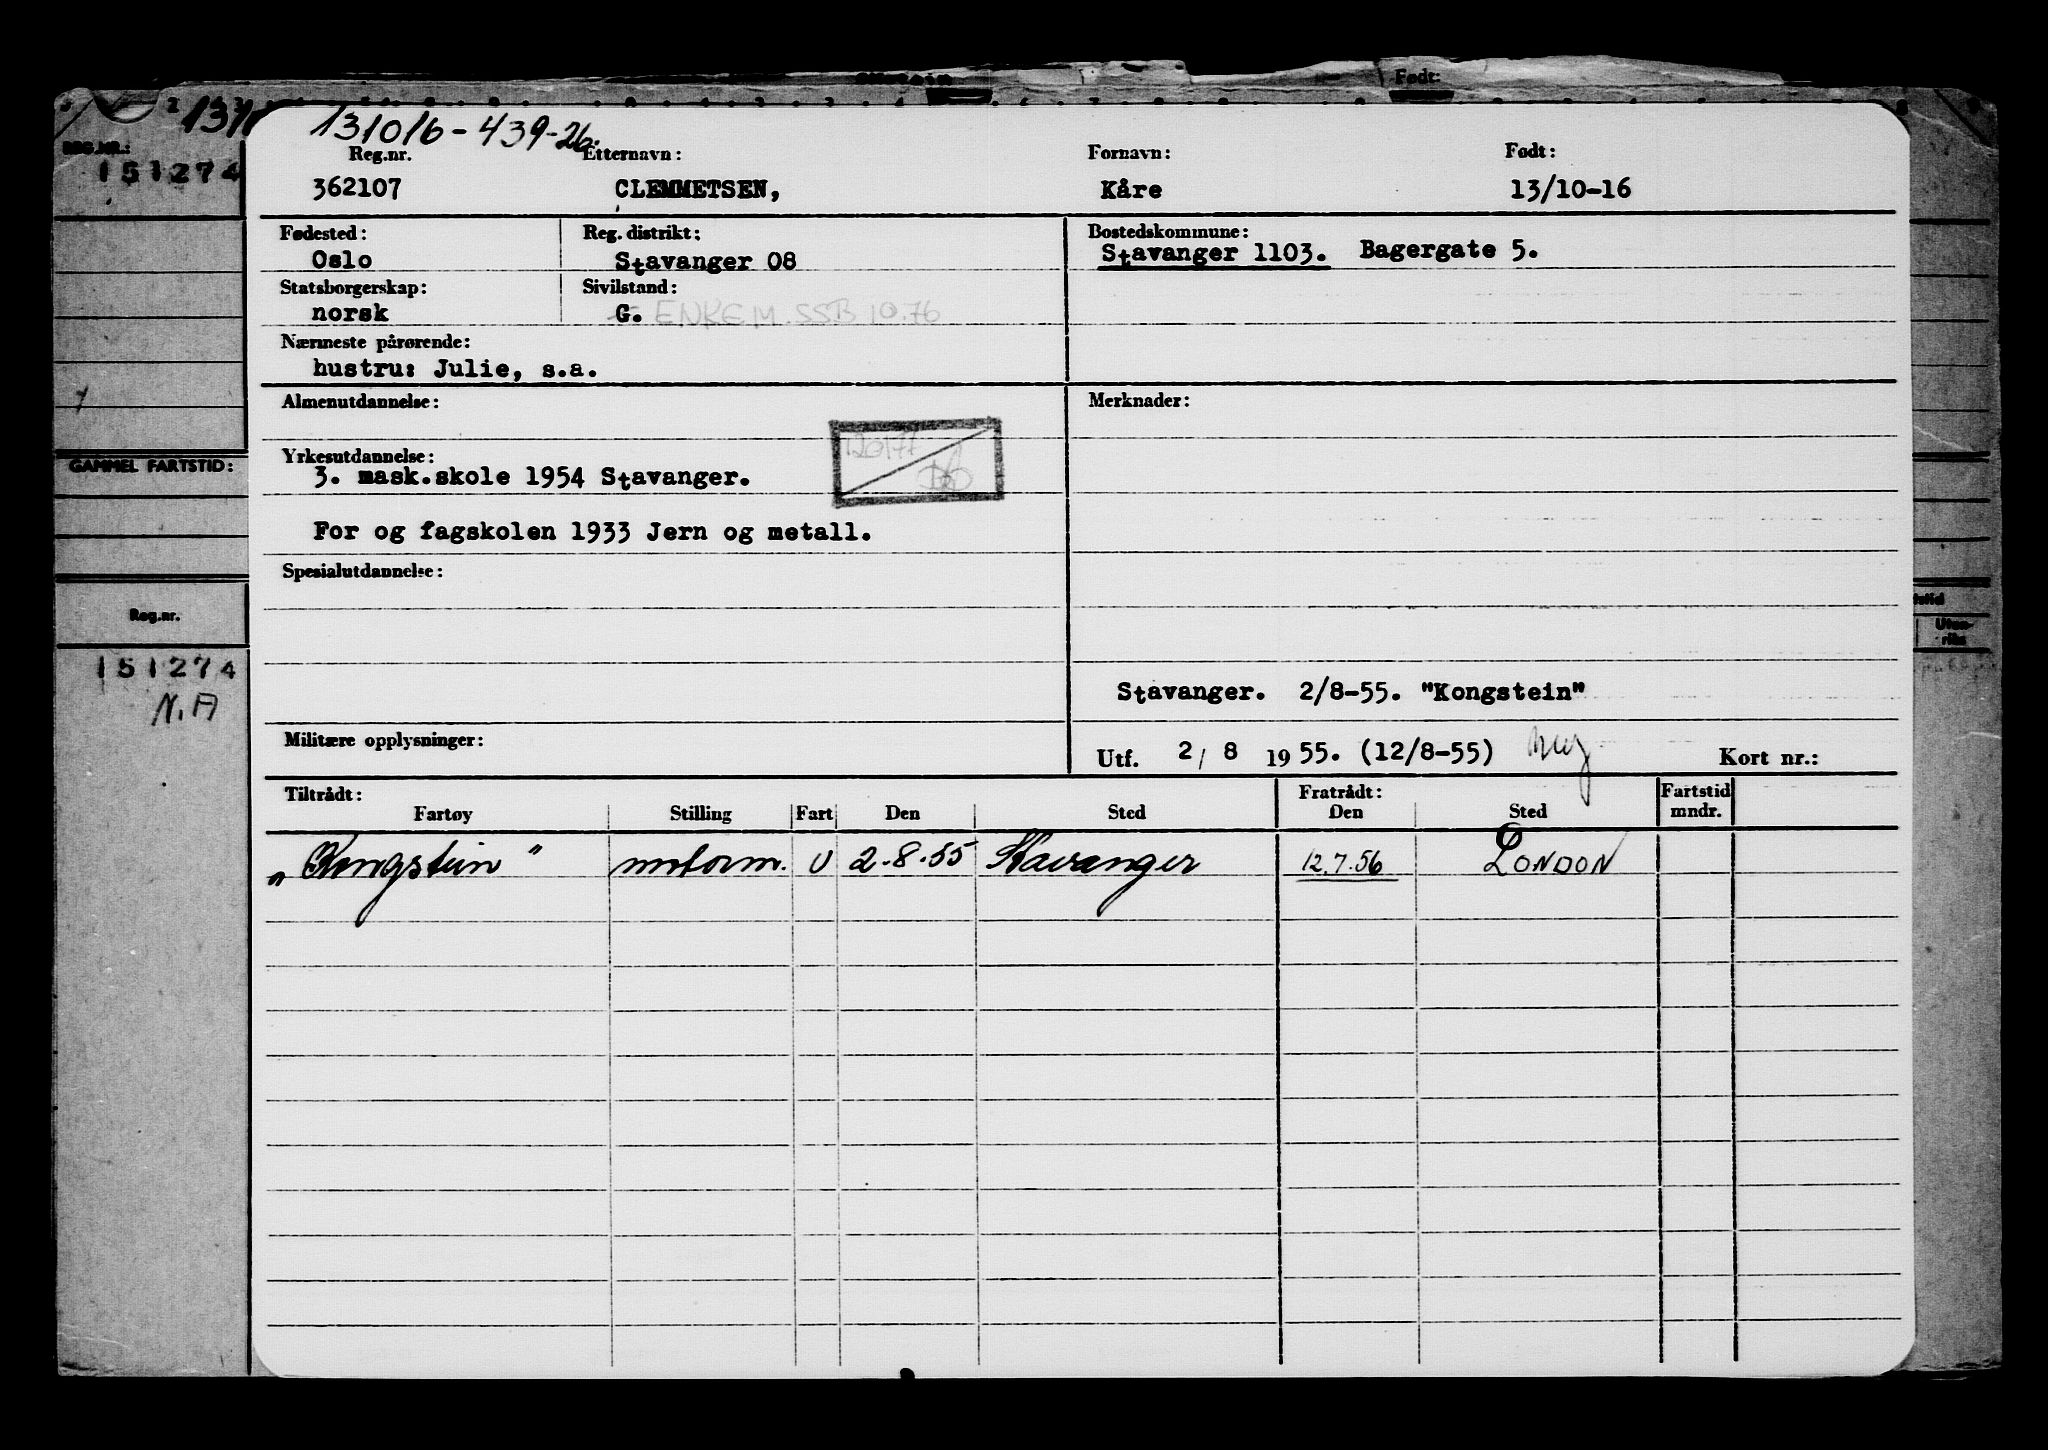 Født:
REG.NR.:
151274
GAMMEL FARTSTID:
Reg.nr.
151274
N.A
131016-439-26.
Reg.nr. Etternavn: Fornavn: Født:
362107 CLEMMETSEN, Kåre 13/10-16
Fødested: Reg. distrikt: Bostedskommune:
Oslo Stavanger 08 Stavanger 1103. Bagergate 5.
Statsborgerskap: Sivilstand:
norsk G. ENKEM. SSB 10.76
Nærmeste pårørende:
hustru: Julie, s.a.
Almenutdannelse: Merknader:
Yrkesutdannelse:
3. mask.skole 1954 Stavanger.
120177
For og fagskolen 1933 Jern og metall.
Spesialutdannelse:
Stavanger. 2/8-55. "Kongstein"
Militære opplysninger:
Utf. 2/8 1955. (12/8-55) Kort nr.:
Tiltrådt: Fratrådt: Fartstid
Fartøy Stilling Fart Den Sted Den Sted mndr.
"Kongstein" motorm. U 2.8.55 Stavanger 12.7.56 LONDON
Uten-
riks